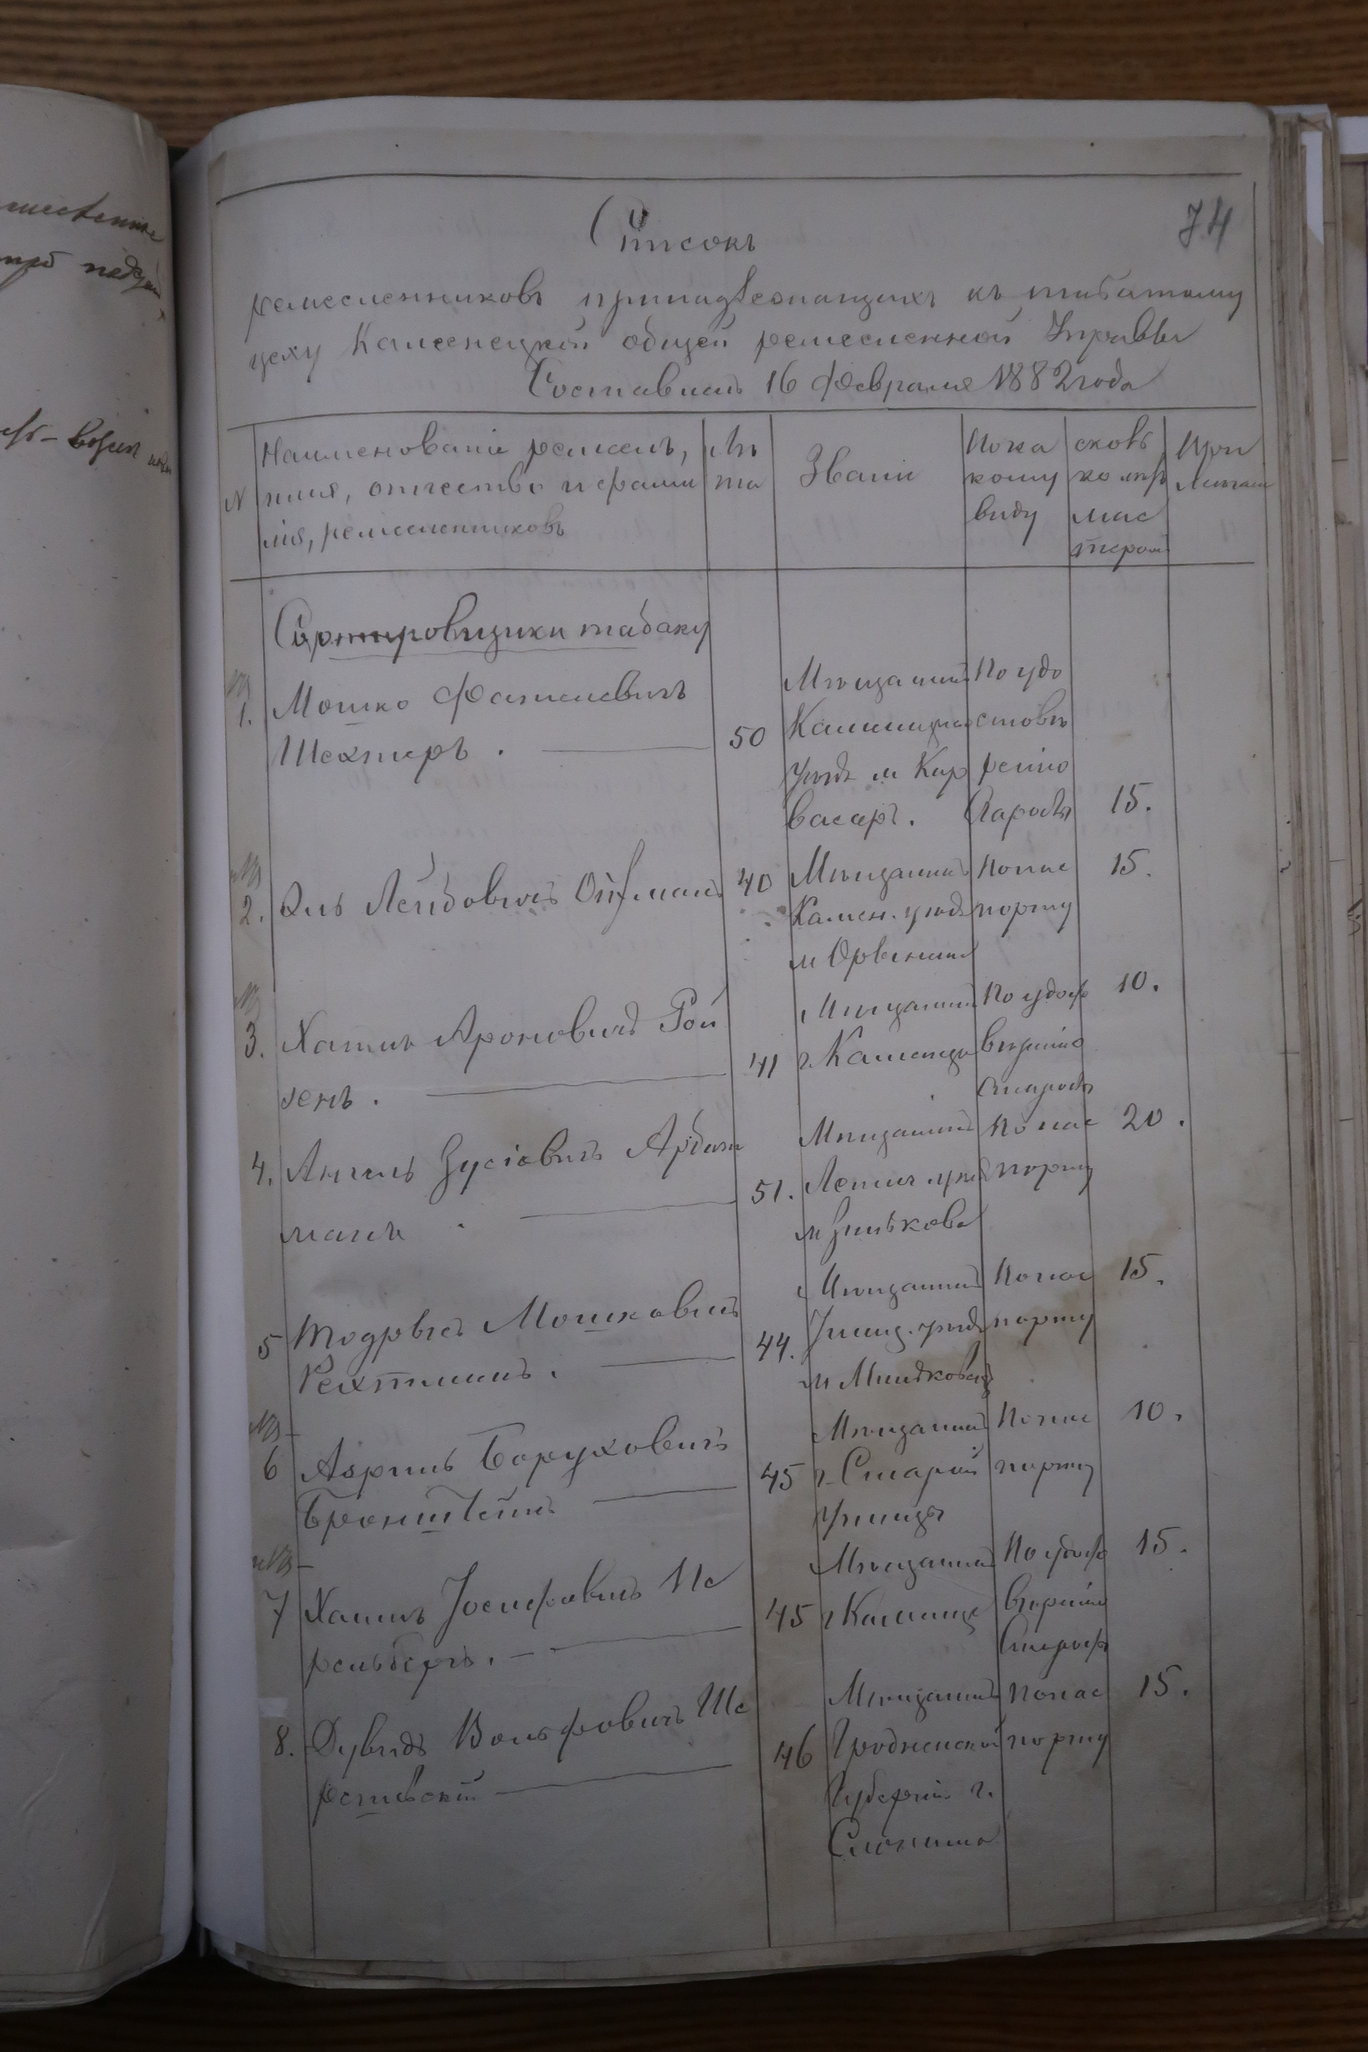 74
Списокъ
ремесленниковъ принадлежащихъ къ табачному
цеху Каменецкой общей ремесленной Управы
Составленъ 16 Февраля 1882 года
N
Наименованіе ремеслъ,
имя, отчество и фами
лія, ремесленниковъ
Лѣ
та
Званіе
По ка
кому
виду
сколь
ко лѣтъ
мас
теромъ
При
мѣчаніе
Сортировщики табаку
1. Мошко Фателевичъ
Шехтеръ. 50
Мѣщанинъ
Каменецкаго
уѣзда м Кар
васаръ.
По удо
стовѣ
ренію
Старосты 15.
2. Эль Лейбовичъ Ойфманъ 40
Мѣщанинъ
Камен. уѣзда
м Орынина
По пас
порту 15.
3. Хаимъ Ароновичъ Рой
зенъ. 41
Мѣщанинъ
г. Каменца
По удос
вѣренію
Старосты 10.
4. Анчель Зусіевичъ Арбит
манъ 51.
Мѣщанинъ
Летич уѣзда
м Зинькова
По пас
порту 20.
5 Тодрысъ Мошковичъ
Рехтманъ. 44.
Мѣщанинъ
Ушиц. уѣзда
м Миньковец
По пас
порту 15.
6 Азриль Боруховичъ
Бронштейнъ 45
Мѣщанинъ
г. Старой
Ушицы
По пас
порту 10.
7 Хаимъ Іосифовичъ Пе
рельберъ. 45
Мѣщанинъ
г Каменца
По удос
вѣренію
Старосты 15.
8. Дувидъ Вольфовичъ Ше
решевскій 46
Мѣщанинъ
Гродненской
Губерніи г.
Слонима
По пас
порту 15.